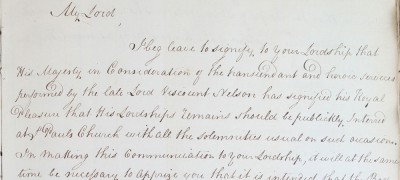 My Lord
I beg leave to signify to your Lordship that
His Majesty in Consideration of the transcendant and heroic services
performed by the late Lord Viscount Nelson has signified his Royal
Pleasure that His Lordships Remains should be publickly Interred
at St. Pauls Church with all the solemnities usual on such occasions.
In making this Communication to your Lordship, it will at the same
time be necessary to apprize you that it is intended that the